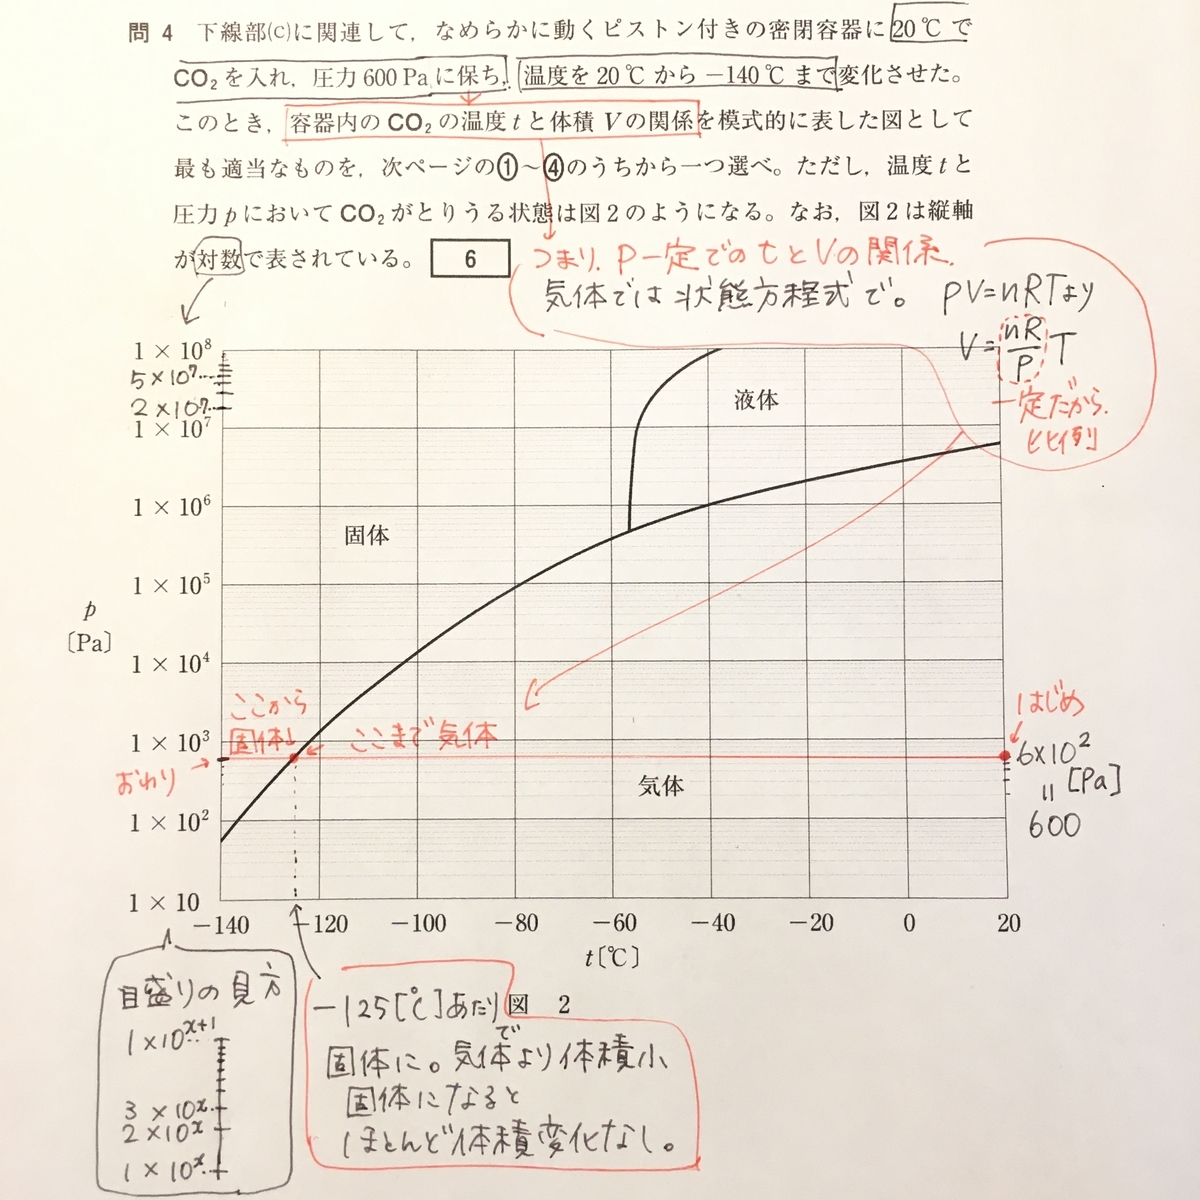 問4 下線部(c)に関連して，なめらかに動くピストン付きの密閉容器に20℃で
CO₂を入れ，圧力600 Paに保ち，温度を20℃から−140℃まで変化させた。
このとき，容器内のCO₂の温度tと体積Vの関係を模式的に表した図として
最も適当なものを，次ページの①～④のうちから一つ選べ。ただし，温度tと
圧力pにおいてCO₂がとりうる状態は図2のようになる。なお，図2は縦軸
が対数で表されている。 6
つまり、P一定でのtとVの関係.
気体では状態方程式で。 PV=nRTより
V=nR/P T
一定だから、
比例
1 × 10⁸
5×10⁷
2×10⁷
1 × 10⁷
1 × 10⁶
1 × 10⁵
1 × 10⁴
1 × 10³
1 × 10²
1 × 10
p
〔Pa〕
液体
固体
気体
ここから
固体↓
ここまで気体
おわり
はじめ
6×10²
〃 [Pa]
600
−140 −120 −100 −80 −60 −40 −20 0 20
t〔℃〕
図 2
目盛りの見方
1×10ˣ⁺¹
3×10ˣ
2×10ˣ
1×10ˣ
−125[℃]あたり
で
固体に。気体より体積小
固体になると
ほとんど体積変化なし。